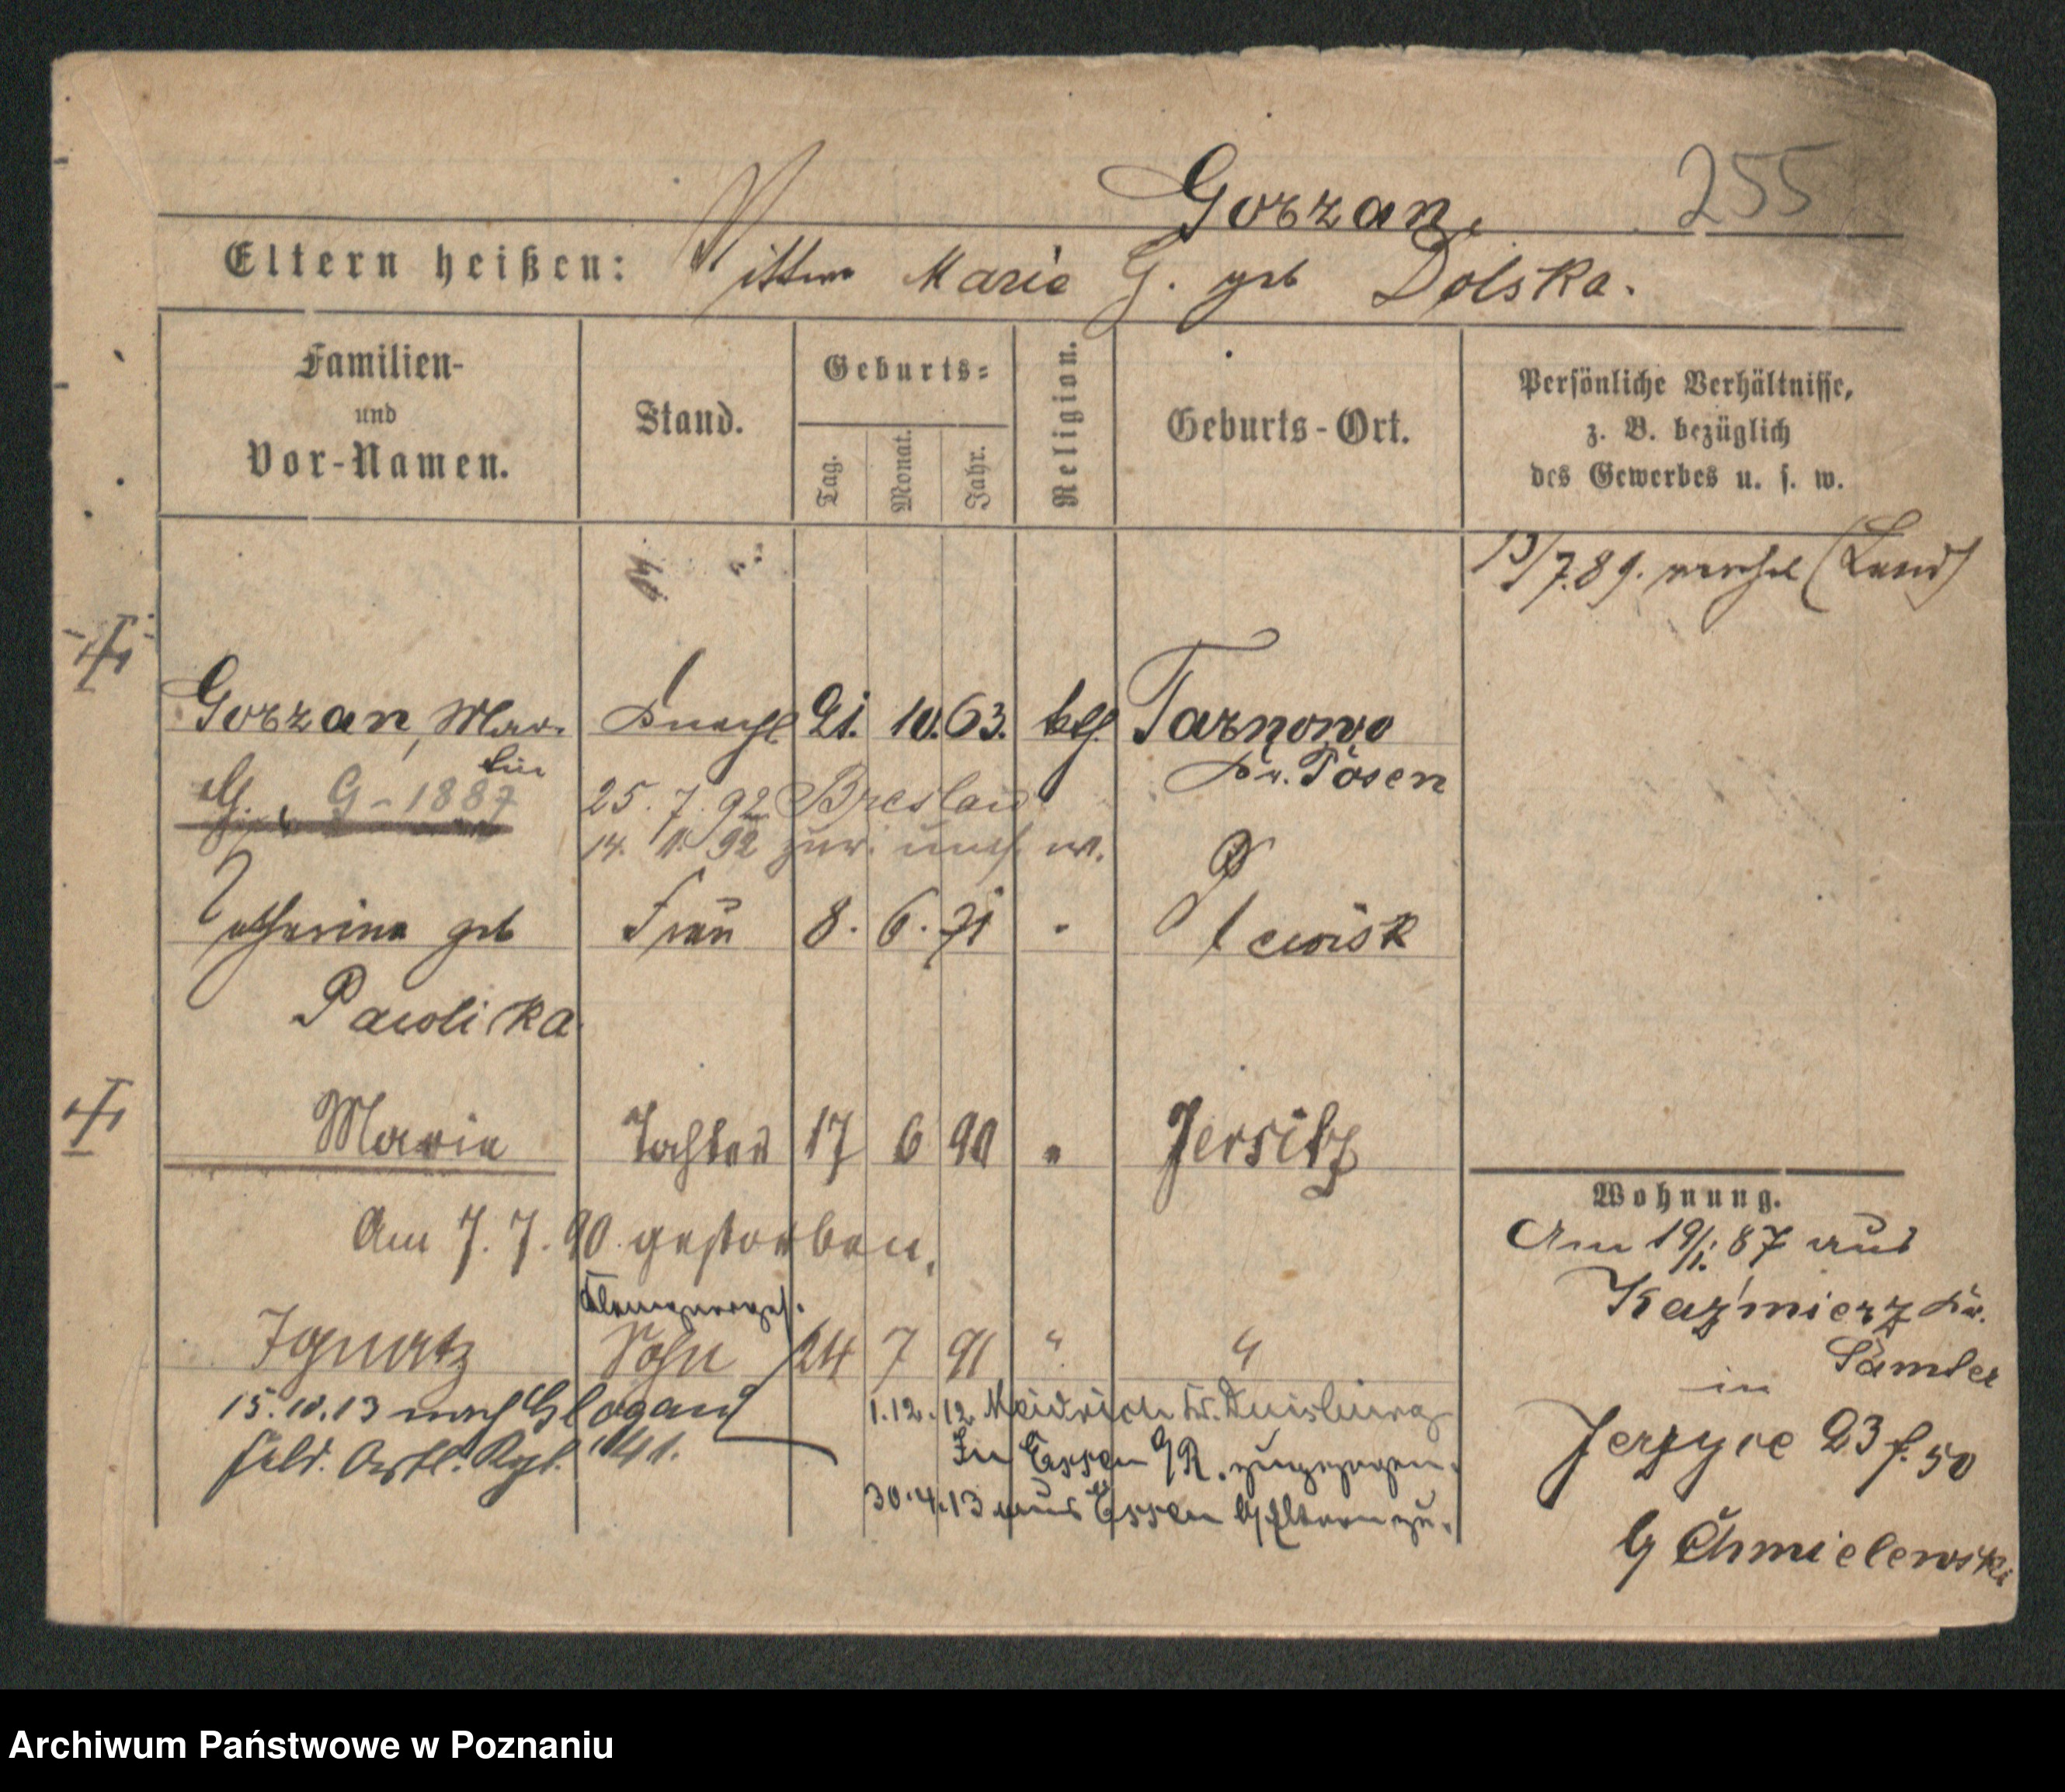 255
Gorzan,
Eltern heißen: Mutter Marie G. geb Dolska.
Familien-
und
Vor-Namen.
Stand.
Geburts-
Tag.
Monat.
Jahr.
Religion.
Geburts-Ort.
Persönliche Verhältnisse,
z. B. bezüglich
des Gewerbes u. s. w.
13/7.89. (Land)
Gorzan, Mar- Knecht 21. 10. 63. kth. Tarnowo
tin Kr. Posen
G - 1887 25. 7. 92 Breslau
14. 11. 92 zur.
Catharina geb Frau 8. 6. 71 " Plewisk
Pawlicka
Marie Tochter 17 6 90 " Jersitz
Am 7. 7. 90 gestorben.
Klempnerges.
Ignatz Sohn 24 7 91 " "
15.10.13 nach Glogau
Feld. Artl. Rgt. 41.
1.12.12 Meidrich Kr. Duisburg
In Essen zugezogen.
30.4.13 aus Essen b/Eltern zu.
Wohnung.
Am 19/1. 87 aus
Kaźmierz Kr.
Samter
in
Jerzyce 23 f. 50
b/ Chmielewski
Archiwum Państwowe w Poznaniu